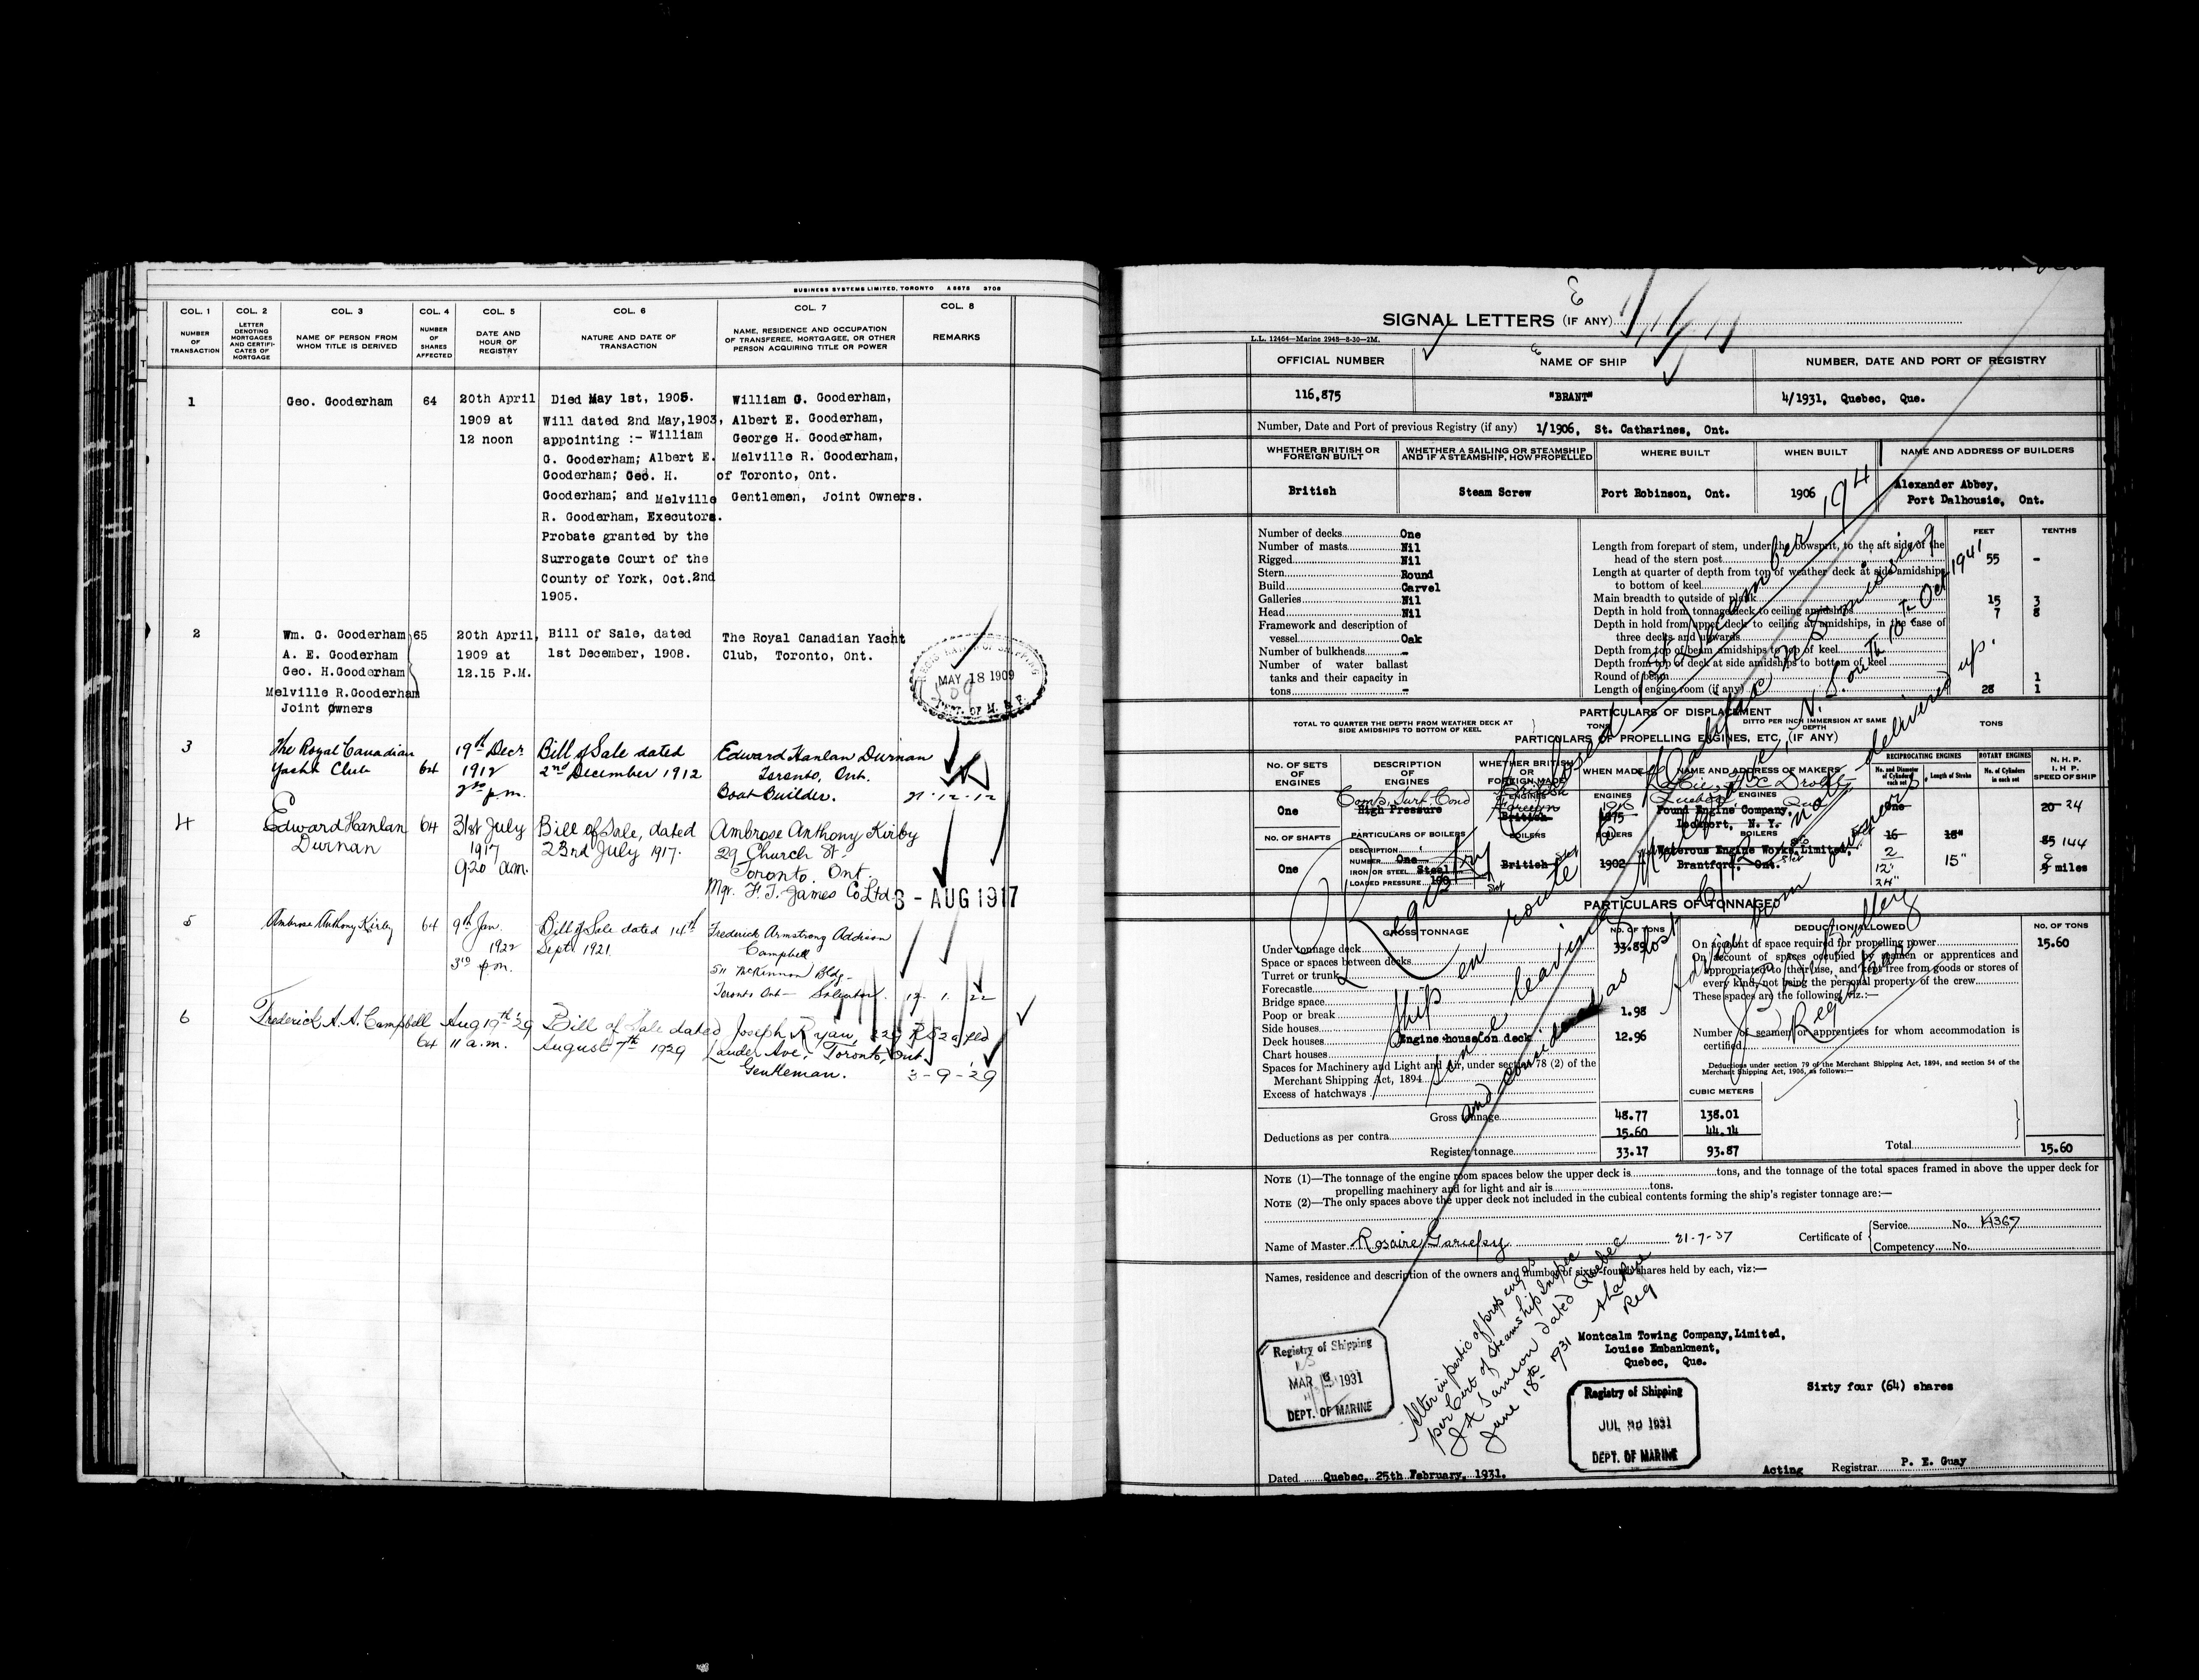 BUSINESS SYSTEMS LIMITED, TORONTO A 5675 3708
COL. 1 COL. 2 COL. 3 COL. 4 COL. 5 COL. 6 COL. 7 COL. 8
NUMBER OF TRANSACTION
LETTER DENOTING MORTGAGES AND CERTIFICATES OF MORTGAGE
NAME OF PERSON FROM WHOM TITLE IS DERIVED
NUMBER OF SHARES AFFECTED
DATE AND HOUR OF REGISTRY
NATURE AND DATE OF TRANSACTION
NAME, RESIDENCE AND OCCUPATION OF TRANSFEREE, MORTGAGEE, OR OTHER PERSON ACQUIRING TITLE OR POWER
REMARKS
1 Geo. Gooderham 64
20th April
1909 at
12 noon
Died May 1st, 1905.
Will dated 2nd May, 1903,
appointing :- William
G. Gooderham; Albert E.
Gooderham; Geo. H.
Gooderham; and Melville
R. Gooderham, Executors.
Probate granted by the
Surrogate Court of the
County of York, Oct. 2nd
1905.
William G. Gooderham,
Albert E. Gooderham,
George H. Gooderham,
Melville R. Gooderham,
of Toronto, Ont.
Gentlemen, Joint Owners.
2 Wm. G. Gooderham 65
A. E. Gooderham
Geo. H. Gooderham
Melville R. Gooderham
Joint Owners
20th April,
1909 at
12.15 P.M.
Bill of Sale, dated
1st December, 1908.
The Royal Canadian Yacht
Club, Toronto, Ont.
MAY 18 1909
3 The Royal Canadian
Yacht Club 64
19th Decr
1912
2 p.m.
Bill of Sale dated
2nd December 1912
Edward Hanlan Durnan
Toronto, Ont.
Boat Builder.
21-12-12
4 Edward Hanlan 64
Durnan
31st July
1917
9.20 am.
Bill of Sale, dated
23rd July 1917.
Ambrose Anthony Kirby
29 Church St.
Toronto. Ont.
Mgr. F. T. James Co Ltd.
3 - AUG 1917
5 Ambrose Anthony Kirby 64
9th Jan.
1922
3 p.m.
Bill of Sale dated 14th
Sept. 1921.
Frederick Armstrong Addison
Campbell
511 McKinnon Bldg-
Toronto Ont- Solicitor.
12. 1. 22
6 Frederick A. A. Campbell
64
Aug 19th '29
11 a.m.
Bill of Sale dated
August 7th 1929
Joseph Ryan, 229
Lauder Ave, Toronto, Ont.
Gentleman.
3-9-29
SIGNAL LETTERS (IF ANY)
L.L. 12464—Marine 2948—8-30—2M.
OFFICIAL NUMBER NAME OF SHIP NUMBER, DATE AND PORT OF REGISTRY
116,875 "BRANT" 4/1931, Quebec, Que.
Number, Date and Port of previous Registry (if any) 1/1906, St. Catharines, Ont.
WHETHER BRITISH OR FOREIGN BUILT
WHETHER A SAILING OR STEAMSHIP AND IF A STEAMSHIP, HOW PROPELLED
WHERE BUILT
WHEN BUILT
NAME AND ADDRESS OF BUILDERS
British Steam Screw Port Robinson, Ont. 1906
Alexander Abbey,
Port Dalhousie, Ont.
Number of decks One
Number of masts Nil
Rigged Nil
Stern Round
Build Carvel
Galleries Nil
Head Nil
Framework and description of
vessel Oak
Number of bulkheads -
Number of water ballast
tanks and their capacity in
tons -
FEET TENTHS
Length from forepart of stem, under the bowsprit, to the aft side of the
head of the stern post 55 -
Length at quarter of depth from top of weather deck at side amidships
to bottom of keel
Main breadth to outside of plank 15 3
Depth in hold from tonnage deck to ceiling amidships 7 8
Depth in hold from upper deck to ceiling at amidships, in the case of
three decks and upwards
Depth from top of beam amidships to top of keel
Depth from top of deck at side amidships to bottom of keel
Round of beam 1
Length of engine room (if any) 28 1
PARTICULARS OF DISPLACEMENT
TOTAL TO QUARTER THE DEPTH FROM WEATHER DECK AT SIDE AMIDSHIPS TO BOTTOM OF KEEL
TONS
DITTO PER INCH IMMERSION AT SAME DEPTH
TONS
PARTICULARS OF PROPELLING ENGINES, ETC, (IF ANY)
NO. OF SETS OF ENGINES
DESCRIPTION OF ENGINES
WHETHER BRITISH OR FOREIGN MADE
WHEN MADE
NAME AND ADDRESS OF MAKERS
RECIPROCATING ENGINES
No. and Diameter of Cylinders in each set
Length of Stroke
ROTARY ENGINES
No. of Cylinders in each set
N. H. P.
I. H. P.
SPEED OF SHIP
One
Comp. Surf. Cond
High Pressure
Foreign
British
1916
1875
Pound Engine Company,
Lockport, N. Y.
One
20 24
NO. OF SHAFTS PARTICULARS OF BOILERS BOILERS BOILERS BOILERS
DESCRIPTION
NUMBER One
IRON OR STEEL Steel
LOADED PRESSURE 100
One British 1902
Waterous Engine Works, Limited,
Brantford, Ont.
16 18"
2
12"
24"
15"
85 144
9
9 miles
PARTICULARS OF TONNAGE
GROSS TONNAGE NO. OF TONS
DEDUCTIONS ALLOWED NO. OF TONS
Under tonnage deck 33.89
Space or spaces between decks
Turret or trunk
Forecastle
Bridge space
Poop or break 1.98
Side houses
Deck houses Engine house on deck 12.96
Chart houses
Spaces for Machinery and Light and Air, under section 78 (2) of the
Merchant Shipping Act, 1894
Excess of hatchways
Gross tonnage 48.77 138.01
Deductions as per contra 15.60 44.14
Register tonnage 33.17 93.87
CUBIC METERS
On account of space required for propelling power 15.60
On account of spaces occupied by seamen or apprentices and
appropriated to their use, and kept free from goods or stores of
every kind, not being the personal property of the crew
These spaces are the following, viz.:—
Number of seamen or apprentices for whom accommodation is
certified
Deductions under section 79 of the Merchant Shipping Act, 1894, and section 54 of the
Merchant Shipping Act, 1906, as follows:—
Total 15.60
NOTE (1)—The tonnage of the engine room spaces below the upper deck is tons, and the tonnage of the total spaces framed in above the upper deck for
propelling machinery and for light and air is tons.
NOTE (2)—The only spaces above the upper deck not included in the cubical contents forming the ship's register tonnage are:—
Name of Master Rosaire Gariepy 21-7-37
Certificate of
Service No. 14367
Competency No.
Names, residence and description of the owners and number of sixty-fourth shares held by each, viz:—
Montcalm Towing Company, Limited,
Louise Embankment,
Quebec, Que.
Sixty four (64) shares
Registry of Shipping
MAR 1931
DEPT. OF MARINE
Alter in partic of prop engs as
per Cert of Steamship Inspec
J A Samson dated Quebec
June 18th 1931
Reg
Registry of Shipping
JUL 1931
DEPT. OF MARINE
Dated Quebec, 25th February, 1931.
Acting Registrar P. E. Guay
Registry Closed December 1941
Ship en route
since leaving
and considered as lost
Advice from owners
Registrar